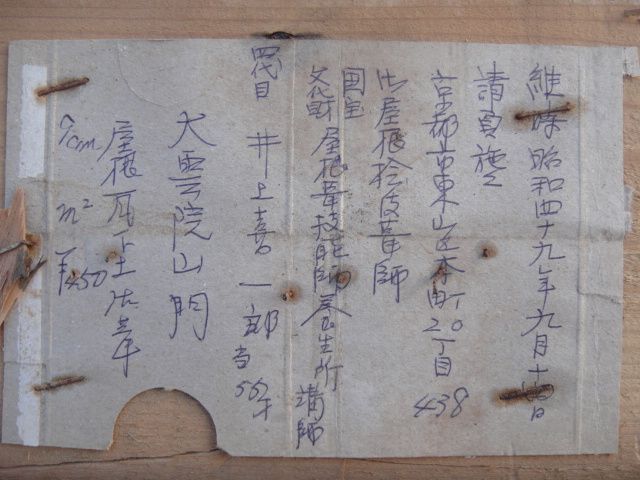 維時昭和四十九年九月十四日
請負施工
京都市東山区本町20丁目438
御屋根桧皮葺師
国宝
文化財屋根葺技能師養生所講師
四代目 井上喜一郎 当55才
大雲院山門
屋根瓦下土居葺
9cm m² ¥1450